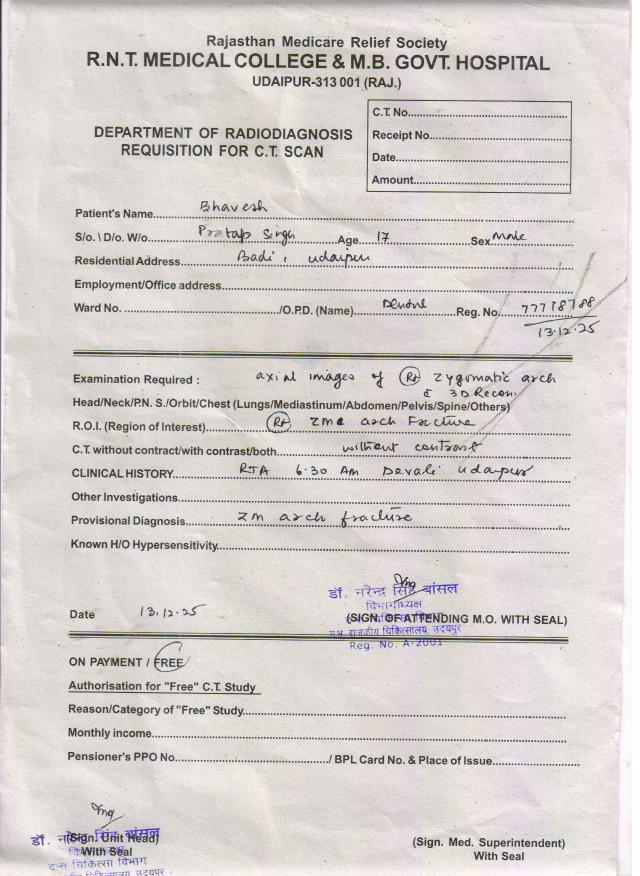 Rajasthan Medicare Relief Society
R.N.T. MEDICAL COLLEGE & M.B. GOVT. HOSPITAL
UDAIPUR-313 001 (RAJ.)
DEPARTMENT OF RADIODIAGNOSIS
REQUISITION FOR C.T. SCAN
C.T. No.
Receipt No.
Date
Amount
Patient's Name Bhavesh
S/o. \ D/o. W/o Pratap Singh Age 17 Sex Male
Residential Address Badi, udaipur
Employment/Office address
Ward No. /O.P.D. (Name) Dental Reg. No. 77718788
13.12.25
Examination Required : axial images of Rt zygomatic arch
c̄ 3D Recon.
Head/Neck/P.N. S./Orbit/Chest (Lungs/Mediastinum/Abdomen/Pelvis/Spine/Others)
R.O.I. (Region of Interest) Rt ZMC arch Fracture
C.T. without contract/with contrast/both without contrast
CLINICAL HISTORY RTA 6.30 Am Devali udaipur
Other Investigations
Provisional Diagnosis ZM arch fracture
Known H/O Hypersensitivity
डॉ. नरेन्द्र सिंह बांसल
विभागाध्यक्ष
Date 13.12.25 (SIGN. OF ATTENDING M.O. WITH SEAL)
राजकीय चिकित्सालय, उदयपुर
Reg. No. A-2001
ON PAYMENT / FREE
Authorisation for "Free" C.T. Study
Reason/Category of "Free" Study
Monthly income
Pensioner's PPO No. / BPL Card No. & Place of Issue
डॉ. नरेन्द्र सिंह बांसल
(Sign. Unit Head) (Sign. Med. Superintendent)
With Seal With Seal
दन्त चिकित्सा विभाग
चिकित्सालय, उदयपुर